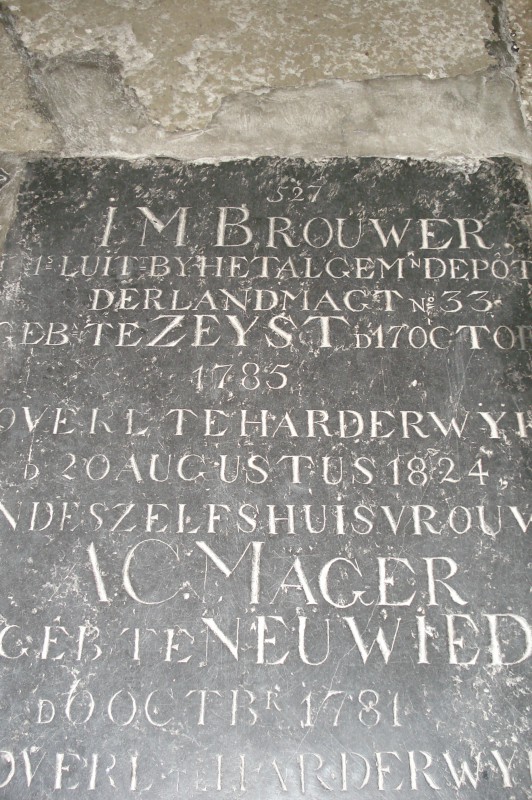 527
I M BROUWER
1S LUITT BY HET ALGEMN DEPOT
DER LANDMAGT No 33
GEBN TE ZEYST D 17 OCTOB
1785
OVERL TE HARDERWYK
D 20 AUGUSTUS 1824
NDESZELFS HUISVROUW
A C MAGER
GEB TE NEUWIED
OCTBR 1781
OVERL TE HARDERWYK